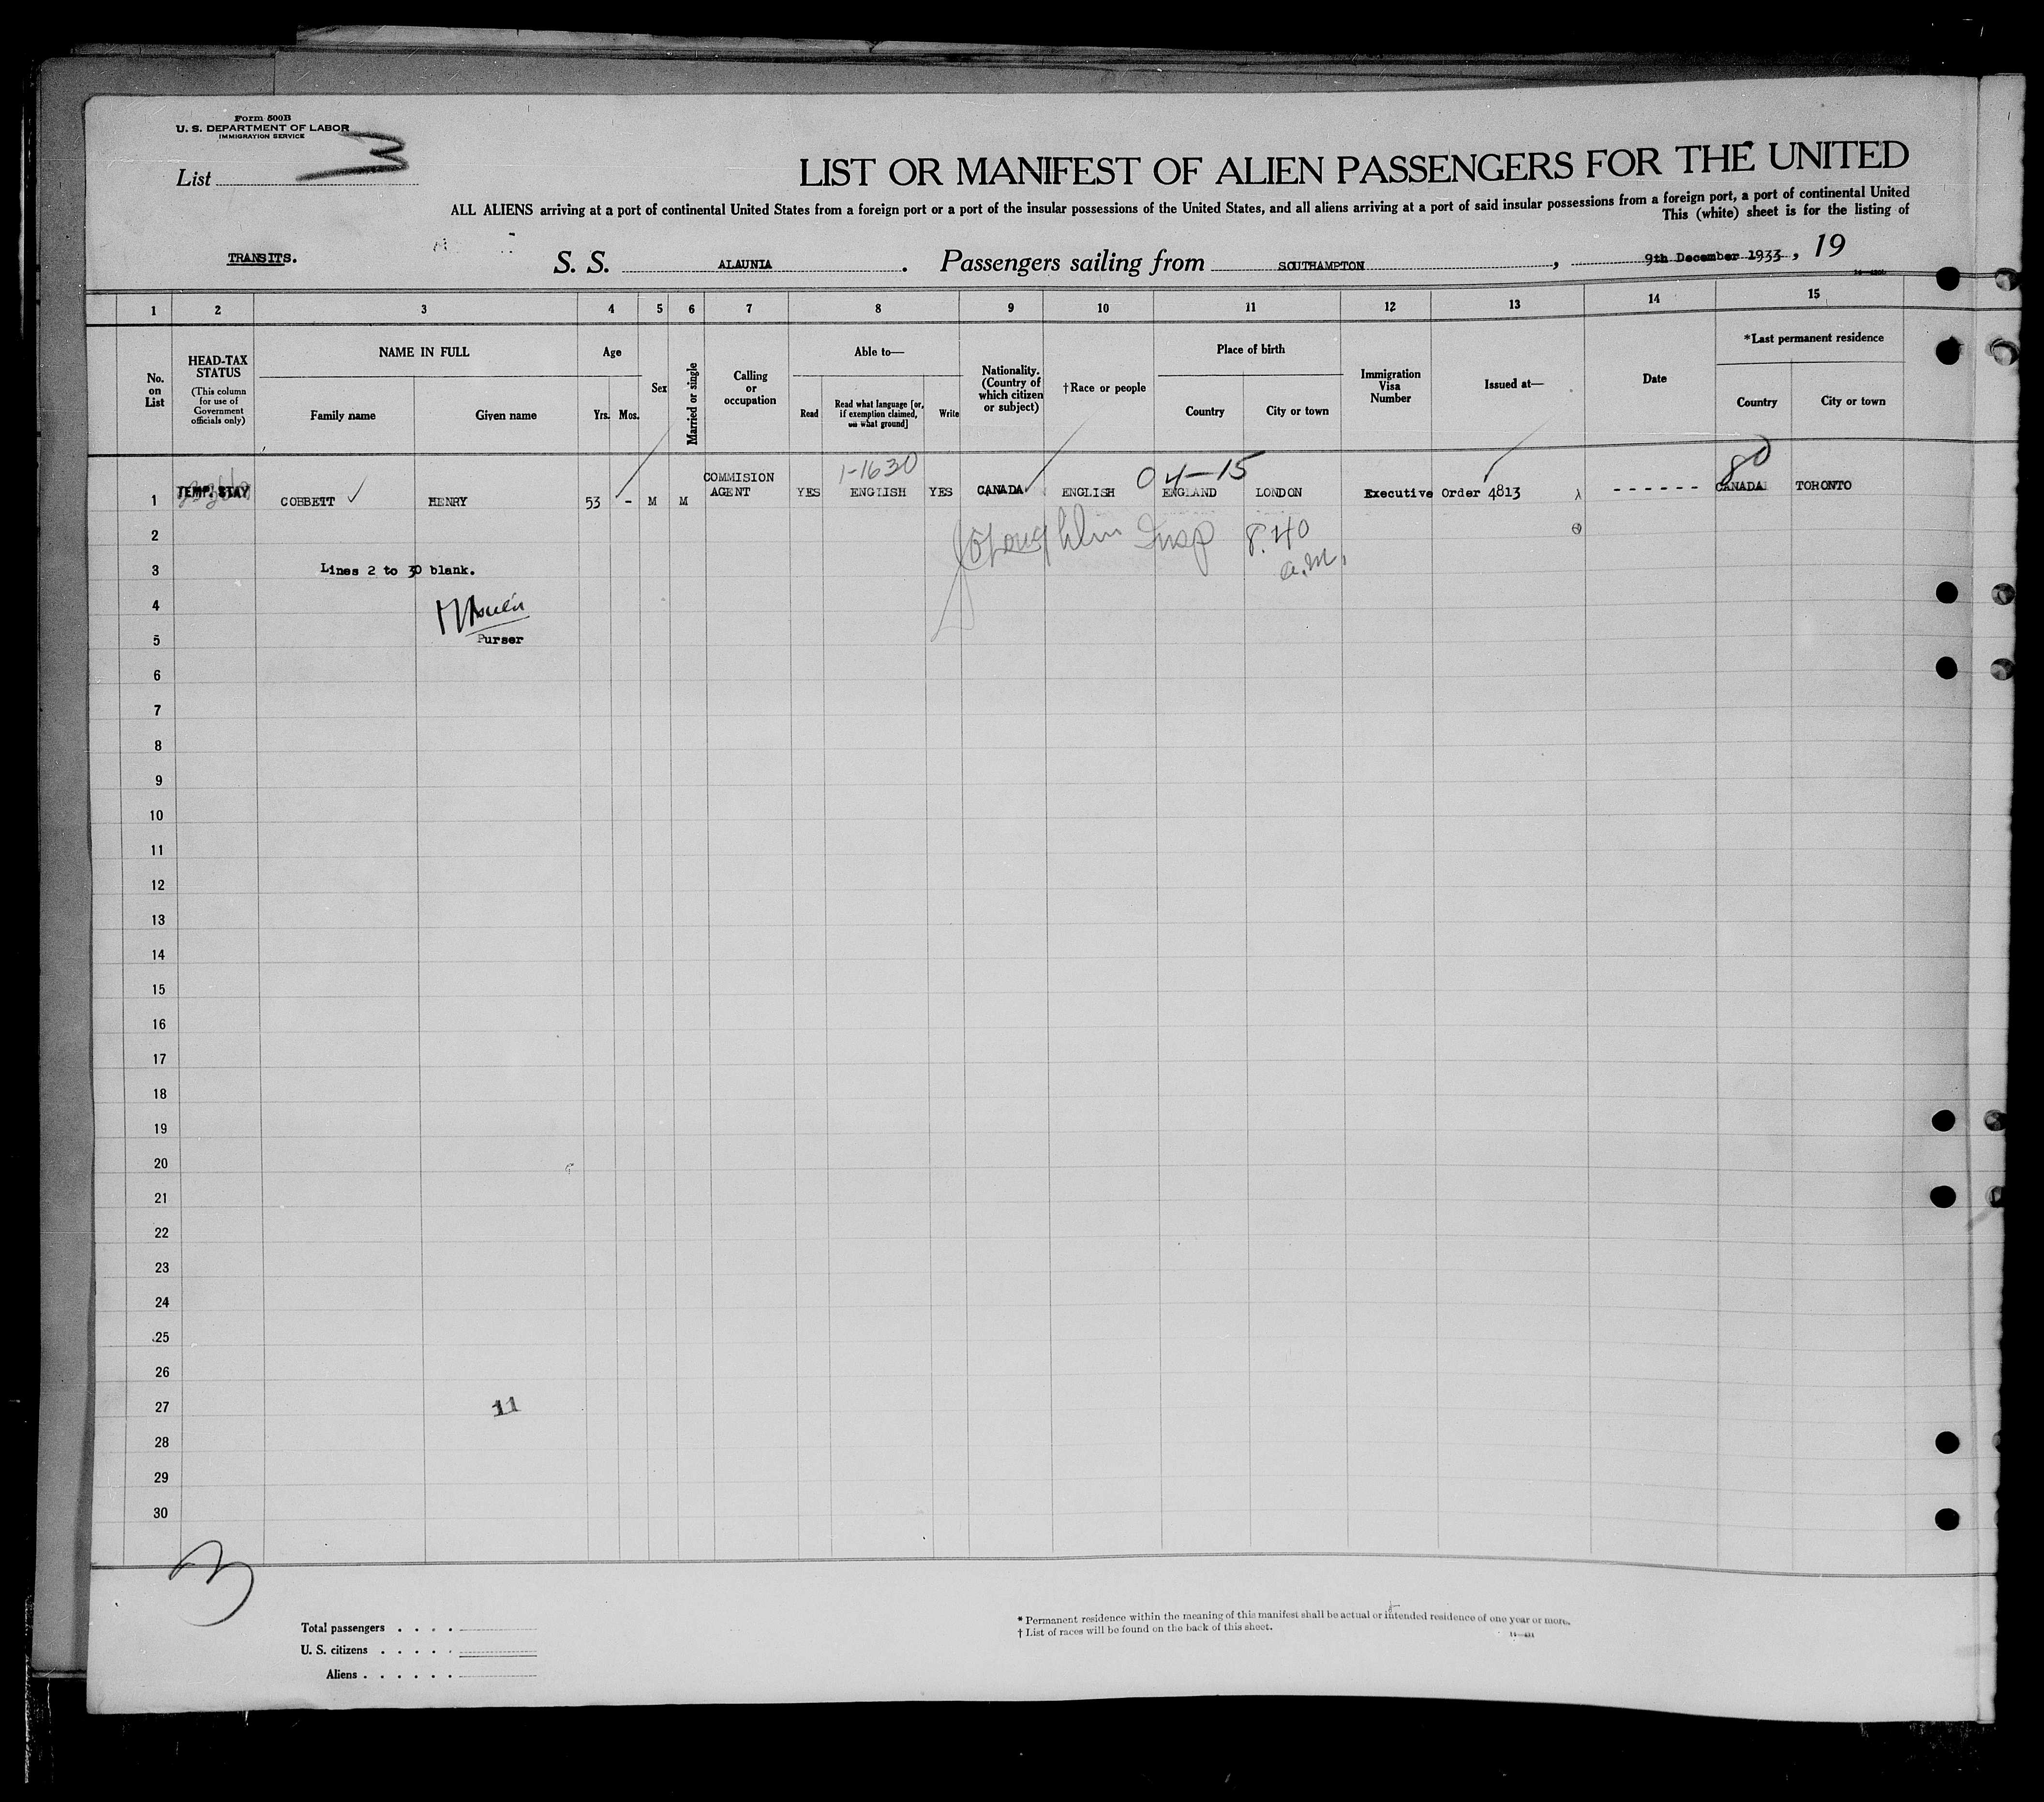 Form 500B
U. S. DEPARTMENT OF LABOR
IMMIGRATION SERVICE
List 3
LIST OR MANIFEST OF ALIEN PASSENGERS FOR THE UNITED
ALL ALIENS arriving at a port of continental United States from a foreign port or a port of the insular possessions of the United States, and all aliens arriving at a port of said insular possessions from a foreign port, a port of continental United
This (white) sheet is for the listing of
TRANSITS. S. S. ALAUNIA. Passengers sailing from SOUTHAMPTON, 9th December 1933, 19
1 2 3 4 5 6 7 8 9 10 11 12 13 14 15
No. on List
HEAD-TAX STATUS (This column for use of Government officials only)
NAME IN FULL
Family name Given name
Age
Yrs. Mos.
Sex
Married or single
Calling or occupation
Able to—
Read Read what language [or, if exemption claimed, on what ground] Write
Nationality. (Country of which citizen or subject)
†Race or people
Place of birth
Country City or town
Immigration Visa Number
Issued at—
Date
*Last permanent residence
Country City or town
1-1630 04-15 80
1 TEMP. STAY COBBETT HENRY 53 - M M COMMISION AGENT YES ENGLISH YES CANADA ENGLISH ENGLAND LONDON Executive Order 4813 - - - - - - CANADA TORONTO
2 Insp 8.40 a.m.
3 Lines 2 to 30 blank.
4
5 Purser
6
7
8
9
10
11
12
13
14
15
16
17
18
19
20
21
22
23
24
25
26
27 11
28
29
30
3
Total passengers . . . .
U. S. citizens . . . . .
Aliens . . . . . .
* Permanent residence within the meaning of this manifest shall be actual or intended residence of one year or more.
† List of races will be found on the back of this sheet.